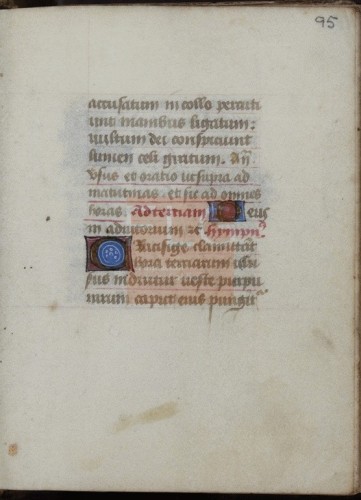 95
accusatum in collo percuti
unt manibus ligatum:
vultum dei conspiciunt
lumen celi gratum. An̄
Vsus et oratio ut supra ad
matutinas. et sic ad omnes
horas. Ad terciam Deus
in adiutorium ꝛc̄ hympn̄
Crucifige clamitāt
hora terciarum illu
sus induitur ueste purpu
rarum caput eius pungit᷑